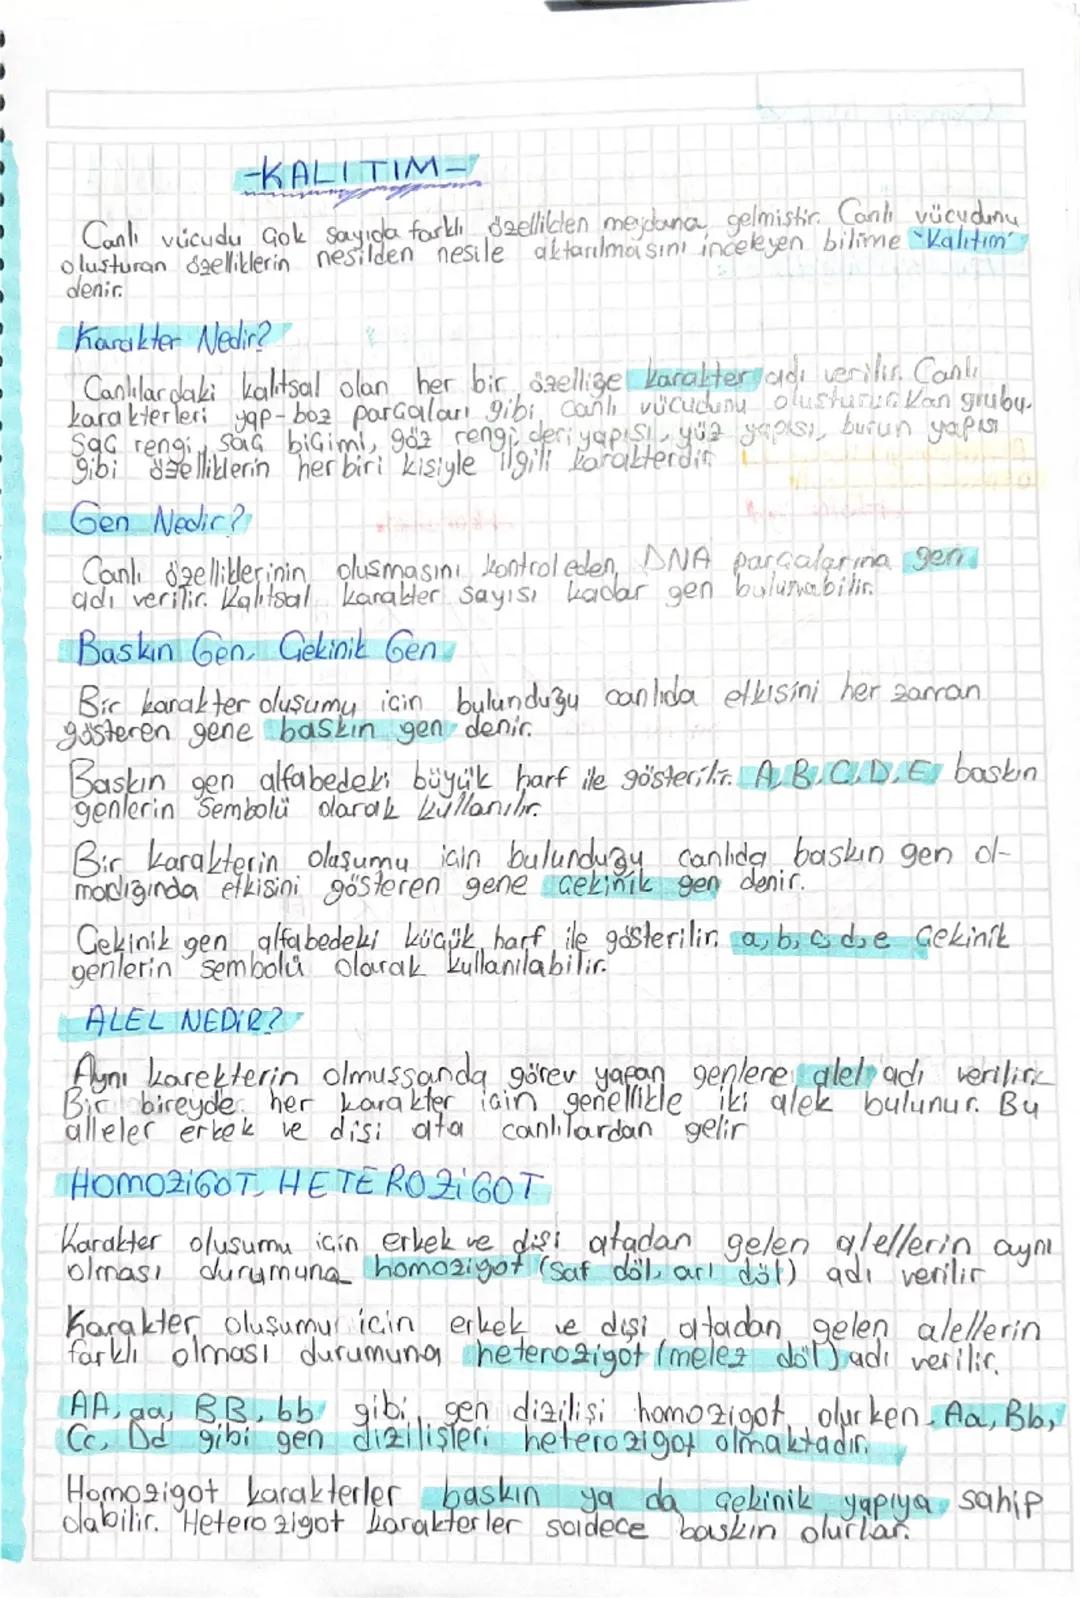 -KALITIM-
Canlı vücudu çok sayıda farklı özellikten meydana gelmiştir. Canlı vücudunu
oluşturan özelliklerin nesilden nesile aktarılmasını inceleyen bilime "Kalıtım"
denir.
Karakter Nedir?
Canlılardaki kalıtsal olan her bir özelliğe karakter adı verilir. Canlı
karakterleri yap-boz parçaları gibi canlı vücudunu oluşturur. Kan grubu.
Saç rengi, saç biçimi, göz rengi, deri yapısı, yüz yapısı, burun yapısı
gibi özelliklerin her biri kişiyle ilgili karakterdir.
Gen Nedir?
Canlı özelliklerinin oluşmasını kontrol eden DNA parçalarına gen
adı verilir. Kalıtsal karakter sayısı kadar gen bulunabilir.
Baskın Gen, Çekinik Gen
Bir karakter oluşumu için bulunduğu canlıda etkisini her zaman
gösteren gene baskın gen denir.
Baskın gen alfabedeki büyük harf ile gösterilir. A, B, C, D, E, baskın
genlerin sembolü olarak kullanılır.
Bir karakterin oluşumu için bulunduğu canlıda baskın gen ol-
madığında etkisini gösteren gene çekinik gen denir.
Çekinik gen alfabedeki küçük harf ile gösterilir. a, b, c, d, e çekinik
genlerin sembolü olarak kullanılabilir.
ALEL NEDİR?
Aynı karekterin olmussanda görev yapan genlere alel adı verilir.
Bir bireyde her karakter için genellikle iki alek bulunur. Bu
alleler erkek ve dişi ata canlılardan gelir
HOMOZİGOT, HETEROZİGOT
Karakter oluşumu için erkek ve dişi atadan gelen alellerin aynı
olması durumuna homozigot (saf döl, arı döl) adı verilir
Karakter oluşumu için erkek ve dişi atadan gelen alellerin
farklı olması durumuna heterozigot (melez döl) adı verilir.
AA, aa, BB, bb gibi gen dizilişi homozigot olurken Aa, Bb,
Cc, Dd gibi gen dizilişleri heterozigot olmaktadır.
Homozigot karakterler baskın ya da çekinik yapıya sahip
olabilir. Heterozigot karakterler sadece baskın olurlar.